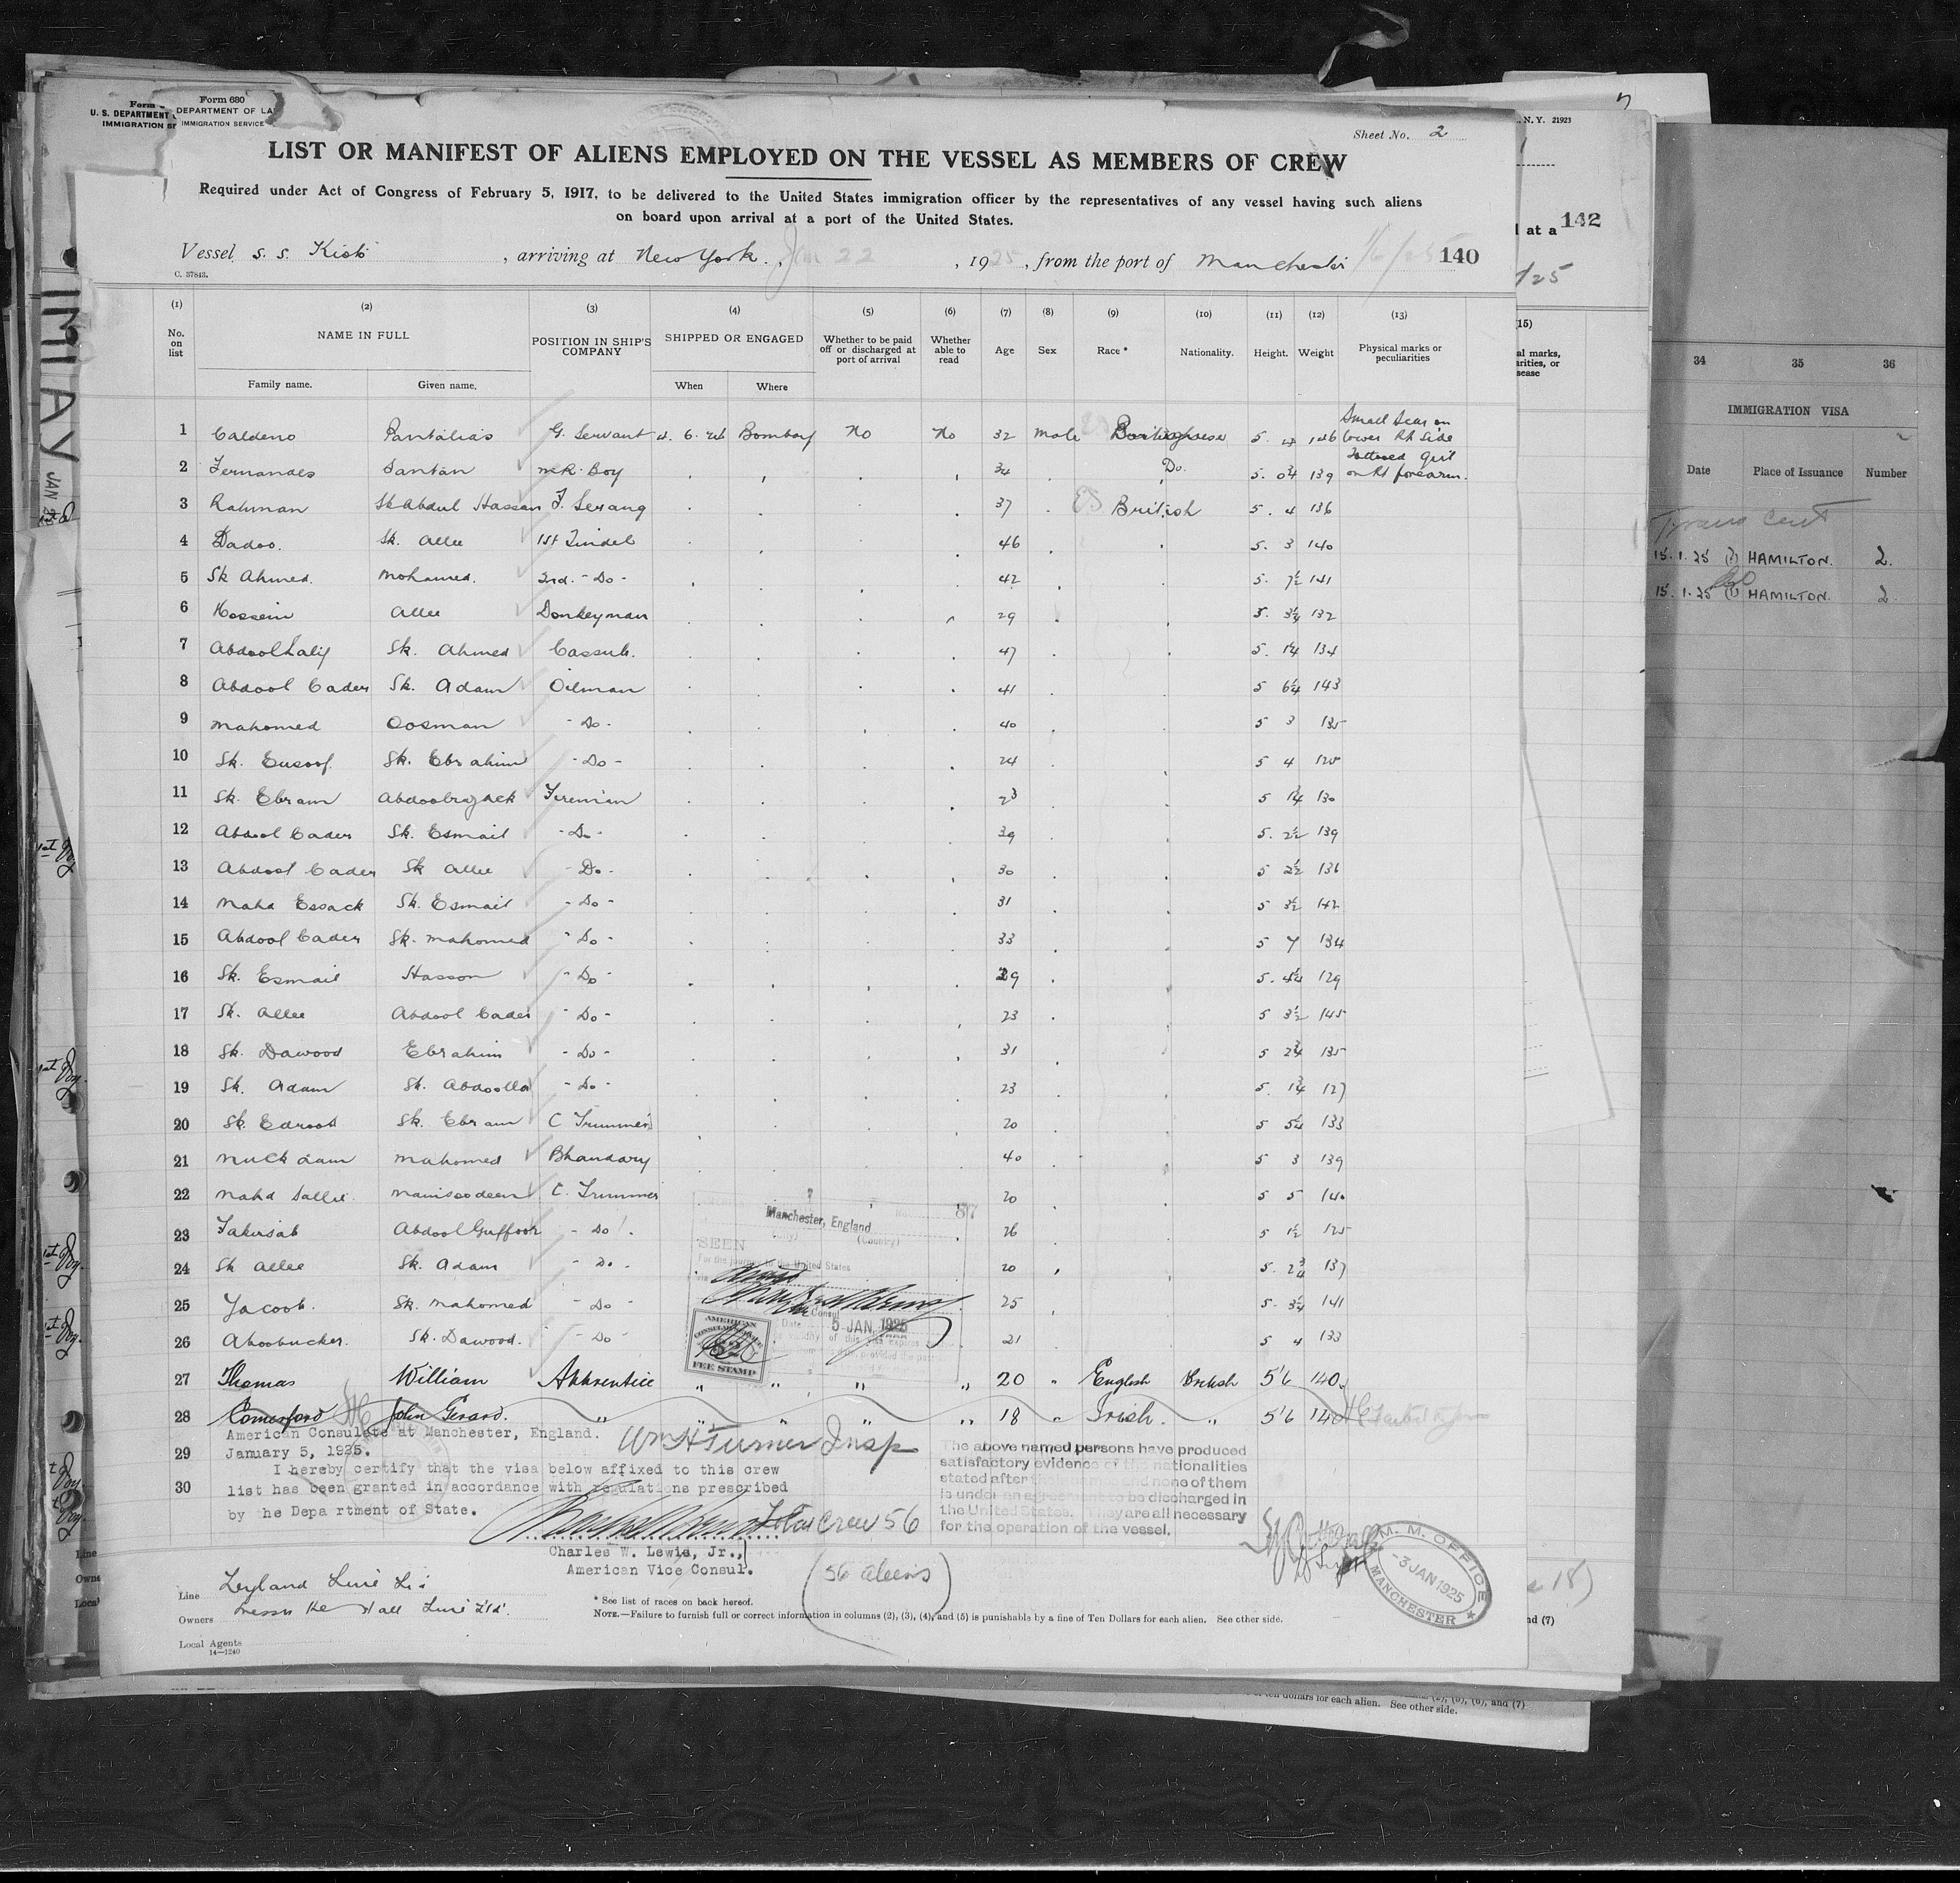 Form 680
DEPARTMENT OF LA
IMMIGRATION SERVICE
U. S. DEPARTMENT
Sheet No. 2
LIST OR MANIFEST OF ALIENS EMPLOYED ON THE VESSEL AS MEMBERS OF CREW
Required under Act of Congress of February 5, 1917, to be delivered to the United States immigration officer by the representatives of any vessel having such aliens
on board upon arrival at a port of the United States.
Vessel S. S. , arriving at New York. , Jan 22 , 1925 , from the port of Manchester 1/6/25 140
C. 37843.
(1) (2) (3) (4) (5) (6) (7) (8) (9) (10) (11) (12) (13)
No. on list NAME IN FULL POSITION IN SHIP'S COMPANY SHIPPED OR ENGAGED Whether to be paid off or discharged at port of arrival Whether able to read Age Sex Race * Nationality. Height. Weight Physical marks or peculiarities
Family name. Given name. When Where
1 Caldeno Pantalias G. Servant Bombay No No 32 Male Portuguese 5. 4 146 Small Scar on lower Rt Side
2 Fernandes Santan Boy 34 Do. 5. 0¾ 139 Tattooed Girl on Rt forearm.
3 Rahman Sk Abdul Hassan F. Serang 37 British 5. 4 136
4 Dadoo. Sk. Allee 1st Tindel 46 5. 3 140
5 Sk Ahmed. Mohamed. 2nd. - Do - 42 5. 7½ 141
6 Hossein Allee Donkeyman 29 5. 3¼ 132
7 Sk. Ahmed Cassub. 47 5. 1¼ 134
8 Abdool Cader Sk. Adam Oilman 41 5 6¼ 143
9 Mahomed Oosman - Do - 40 5 3 135
10 Sk. Eusoof. Sk. Ebrahim - Do - 24 5 4 125
11 Sk. Ebram Abdoolrazack Fireman 23 5 1¾ 130
12 Abdool Cader Sk. Esmail - Do - 39 5. 2½ 139
13 Abdool Cader Sk Allee - Do - 30 5 2½ 136
14 Maha Essack Sk. Esmail - Do - 31 5 3½ 142
15 Abdool Cader Sk. Mahomed - Do - 33 5 7 134
16 Sk. Esmail Hasson - Do - 29 5. 4¼ 129
17 Sk. Allee Abdool Cader - Do - 23 5 3½ 145
18 Sk. Dawood Ebrahim - Do - 31 5 2¾ 135
19 Sk. Adam Sk. Abdoolla - Do - 23 5. 1¾ 127
20 Sk. Sk. Ebram C Trimmer 20 5 5¼ 133
21 Mahomed Bhandary 40 5 3 139
22 Maha Sallie. C. Trimmer 20 5 5 140
23 Fakirsab Abdool Guffoor - Do - 26 5 1½ 125
24 Sk Allee Sk. Adam - Do - 20 5. 2¾ 137
25 Yacoob. Sk. Mahomed - Do - 25 5. 3¼ 141
26 Aboobucker. Sk. Dawood. - Do - 21 5 4 133
27 Thomas William Apprentice " " " " 20 " English British 5'6 140
28 Comerford John Gerard. " " " " " 18 " Irish. " 5'6 140
29
30
Manchester, England
(City) (Country)
SEEN
For the journey to the United States
Date 5 JAN 1925
AMERICAN
CONSULAR SERVICE
FEE STAMP
American Consulate at Manchester, England.
January 5, 1925.
I hereby certify that the visa below affixed to this crew
list has been granted in accordance with regulations prescribed
by the Department of State.
Wm H Turner Insp
The above named persons have produced
satisfactory evidence of the nationalities
stated after their names and none of them
is under an agreement to be discharged in
the United States. They are all necessary
for the operation of the vessel.
Total Crew 56
Charles W. Lewis, Jr.,
American Vice Consul.
(56 aliens)
M. M. OFFICE
-3 JAN 1925
MANCHESTER
Line Leyland Line
Owners Hall Line Ltd.
Local Agents
14—1240
* See list of races on back hereof.
NOTE.—Failure to furnish full or correct information in columns (2), (3), (4), and (5) is punishable by a fine of Ten Dollars for each alien. See other side.
N. Y. 21923
at a 142
/25
(15)
34 35 36
IMMIGRATION VISA
Date Place of Issuance Number
15. 1. 25 HAMILTON. 2.
15. 1. 25 HAMILTON. 2
nd (7)
ten dollars for each alien. See other side.
(2), (3), (6), and (7)